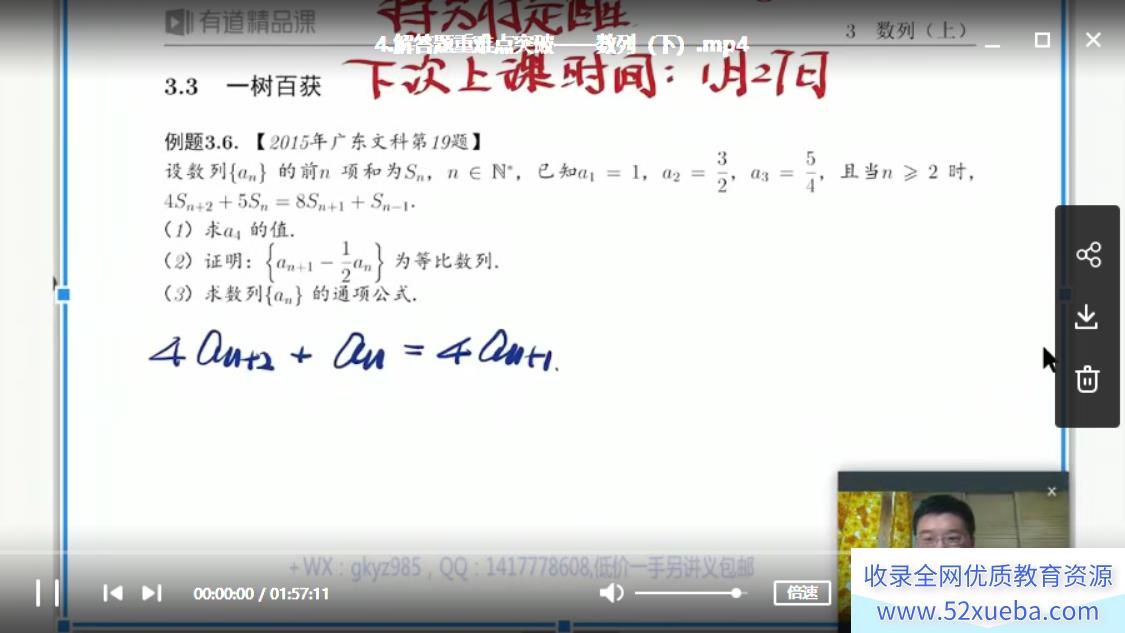 有道精品课
特别提醒
3 数列（上）
4.解答题重难点突破——数列（下）.mp4
3.3 一树百获
下次上课时间：1月27日
例题3.6.【2015年广东文科第19题】
设数列{aₙ} 的前n 项和为Sₙ，n ∈ ℕ*，已知a₁ = 1，a₂ = 3/2，a₃ = 5/4，且当n ⩾ 2 时，
4Sₙ₊₂ + 5Sₙ = 8Sₙ₊₁ + Sₙ₋₁.
（1）求a₄ 的值.
（2）证明：{aₙ₊₁ − 1/2 aₙ} 为等比数列.
（3）求数列{aₙ} 的通项公式.
4aₙ₊₂ + aₙ = 4aₙ₊₁.
+WX：gkyz985，QQ：1417778608,低价一手另讲义包邮
00:00:00 / 01:57:11
倍速
收录全网优质教育资源
www.52xueba.com